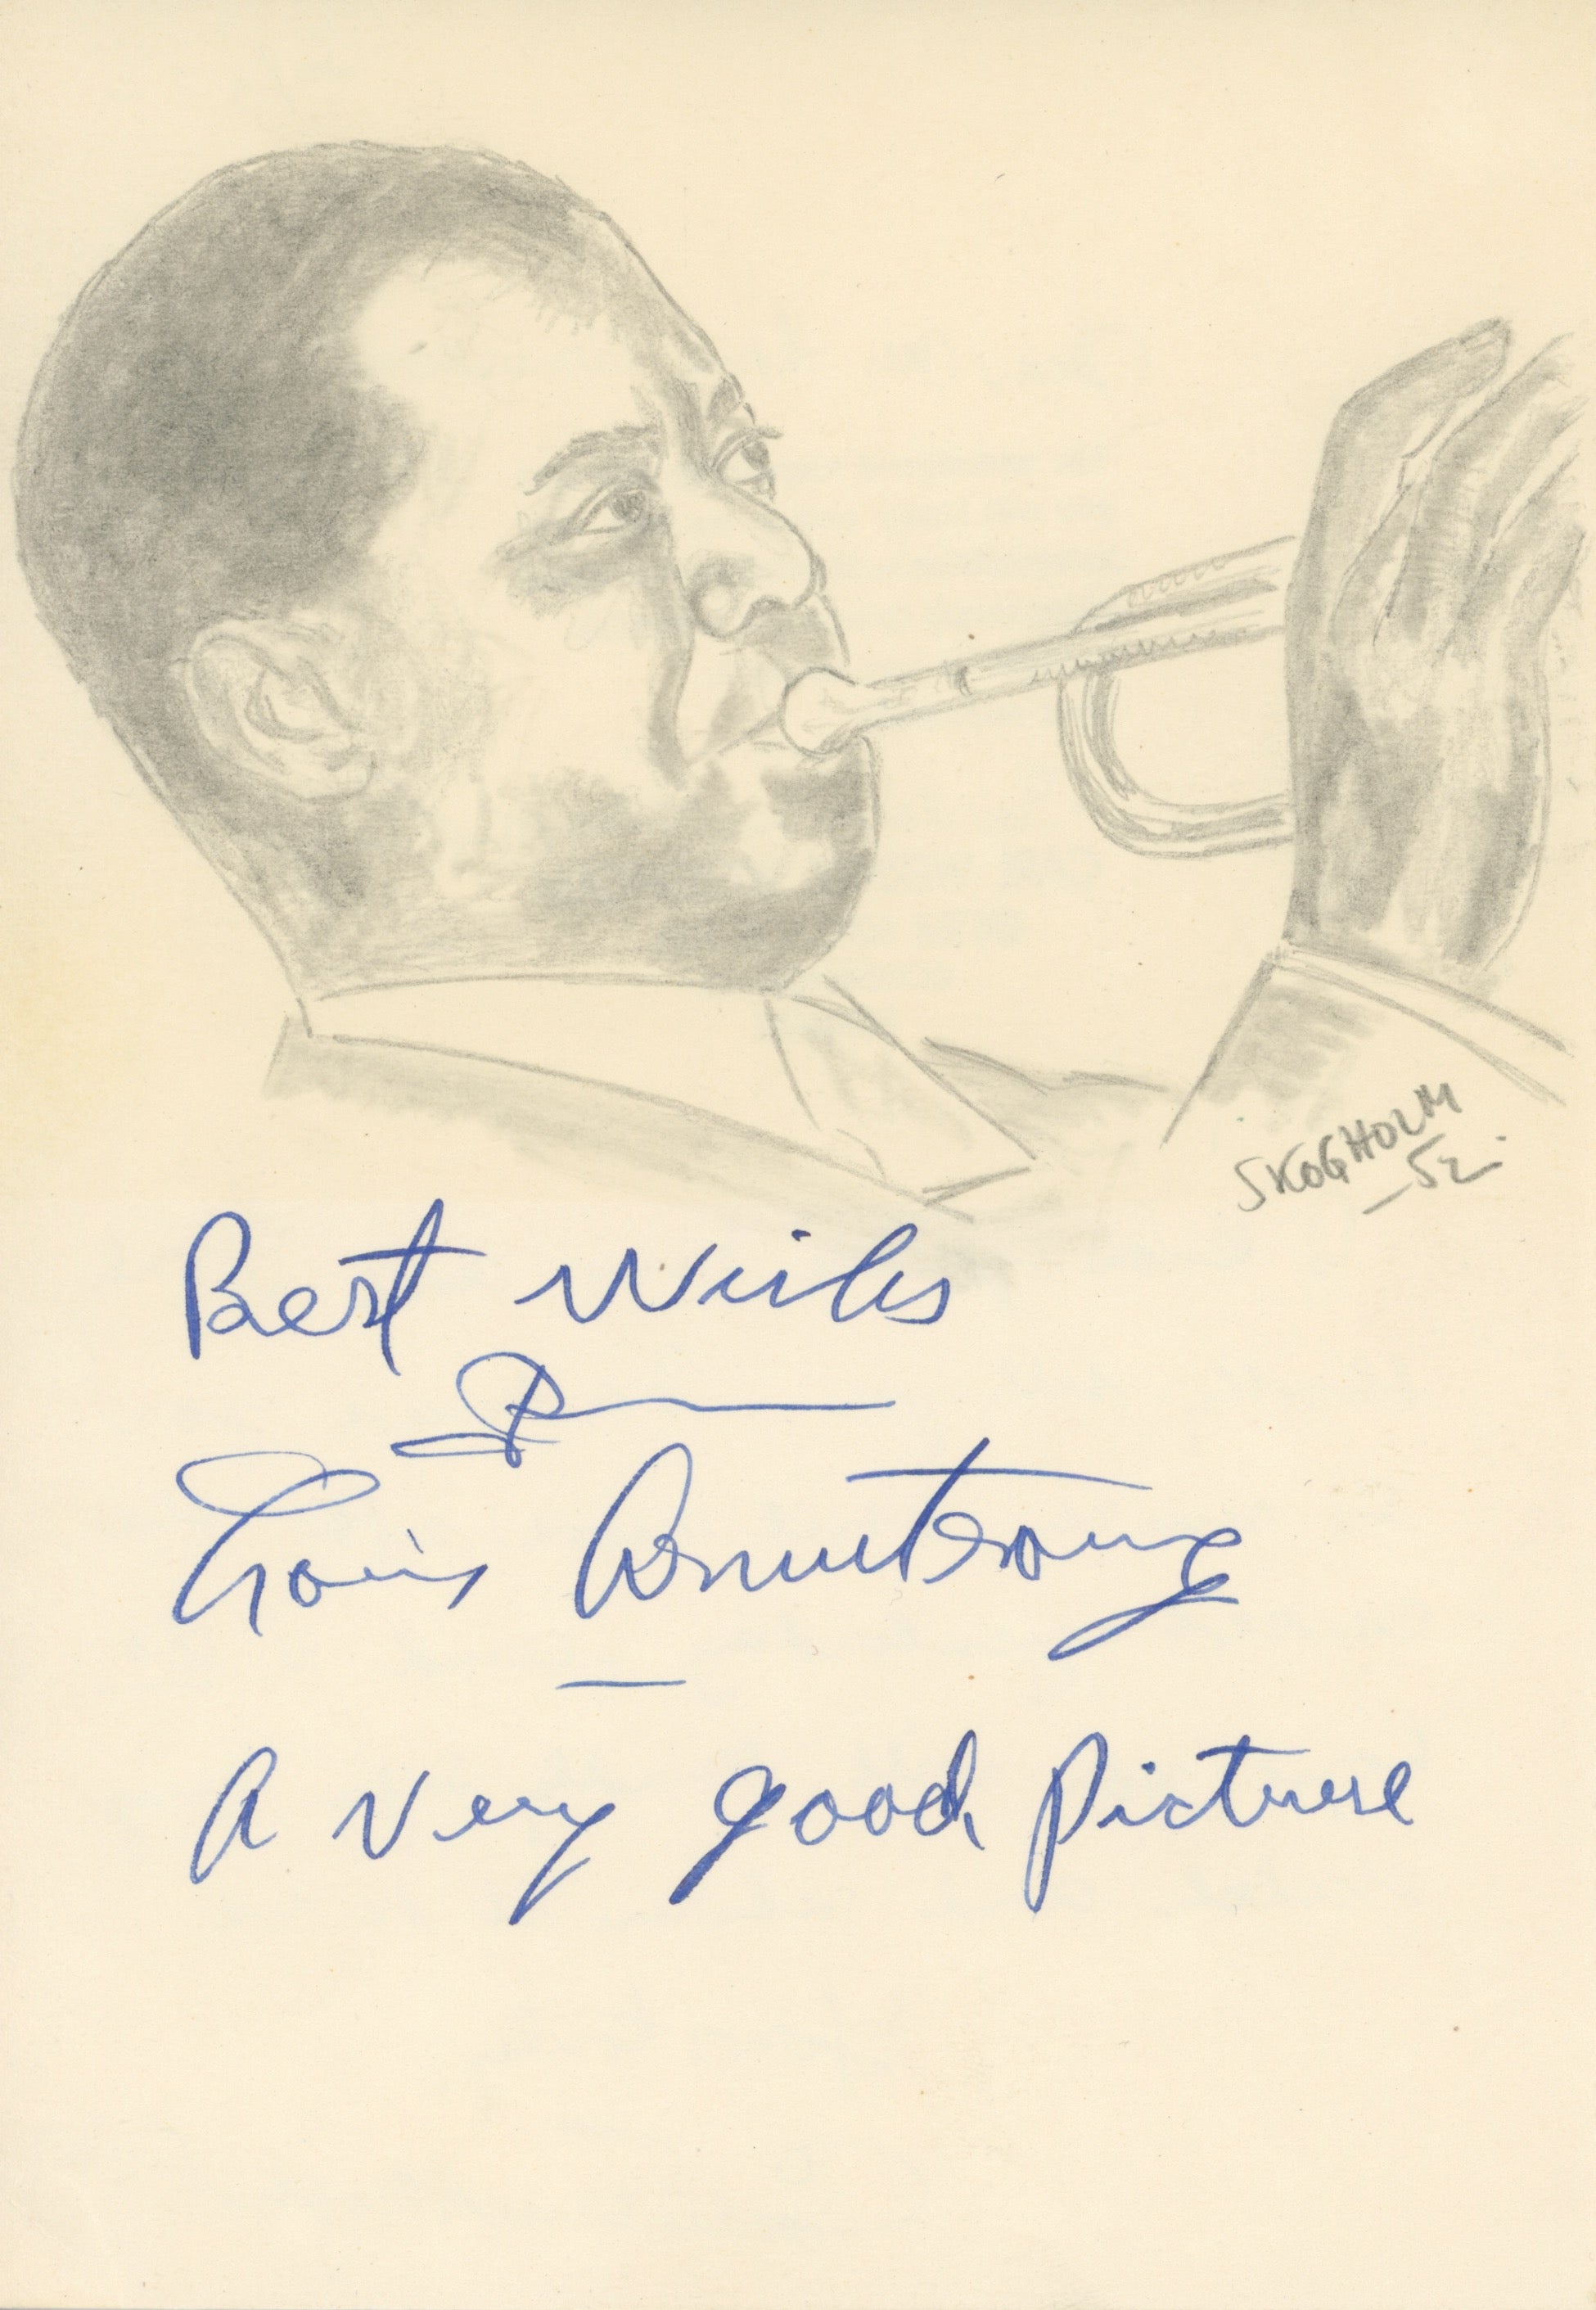 SKOGHOLM
-52.
Best Wishes
From
Louis Armstrong
A very good Picture